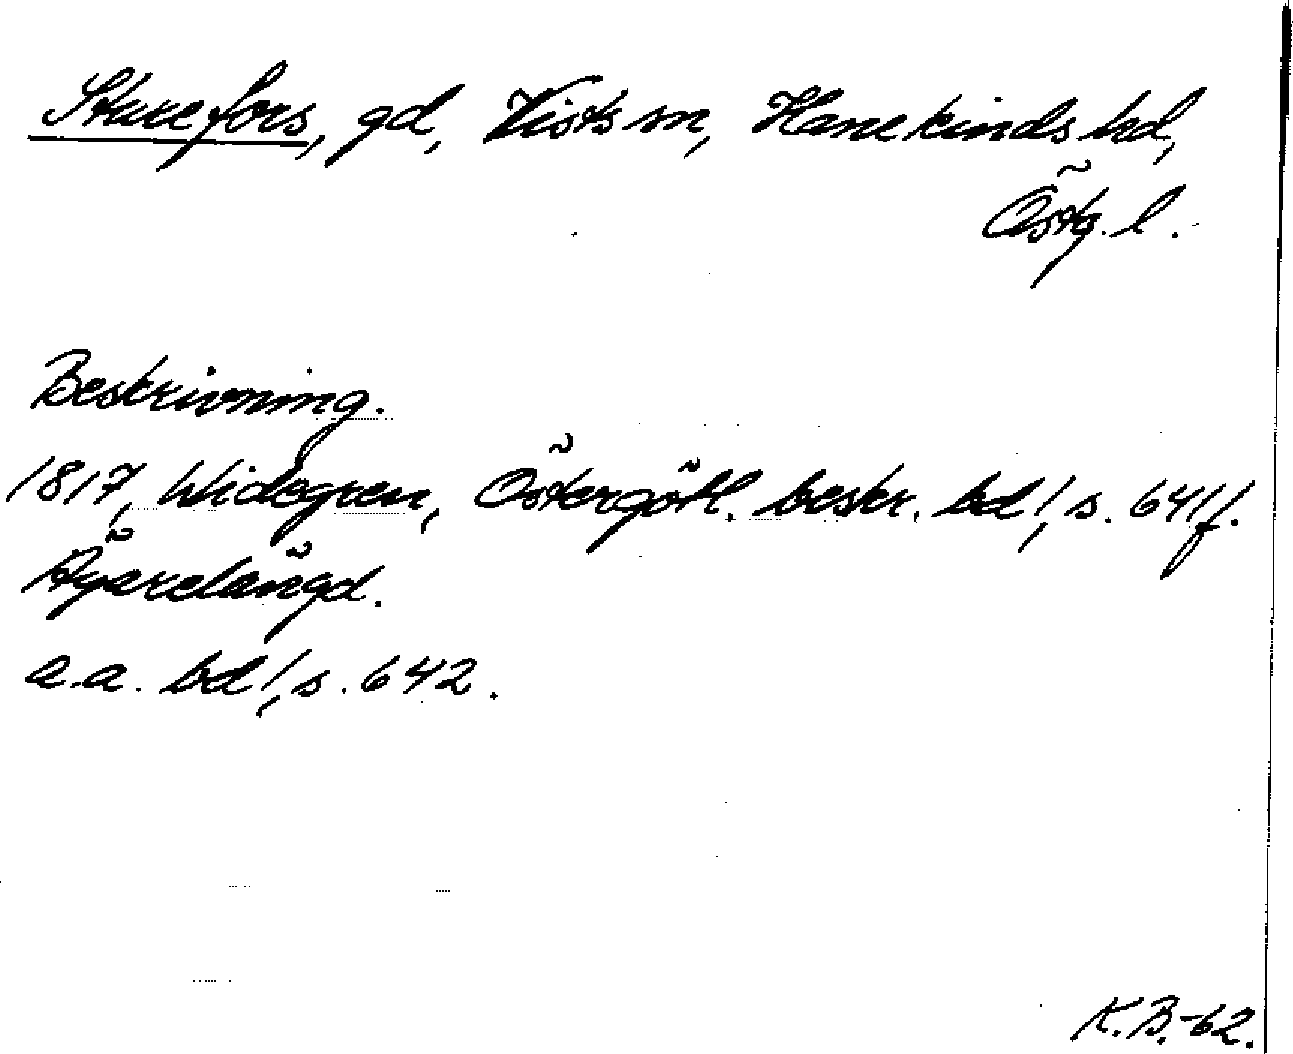 Sturefors, gd, Vists sn, Hanekinds hd,
Östg. l.
Beskrivning.
1817, Widegren, Östergötl. beskr. bd 1, s. 641 f.
Ägarelängd.
a.a. bd 1, s. 642.
K.B.-62.